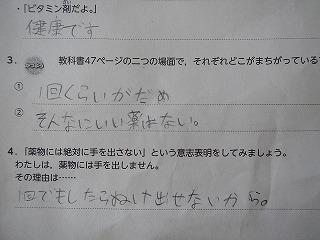 ・「ビタミン剤だよ。」
健康です
3. 教科書47ページの二つの場面で，それぞれどこがまちがっている
① 1回くらいがだめ
② そんなにいい薬はない。
4. 「薬物には絶対に手を出さない」という意志表明をしてみましょう。
わたしは，薬物には手を出しません。
その理由は……
1回でもしたらぬけ出せないから。